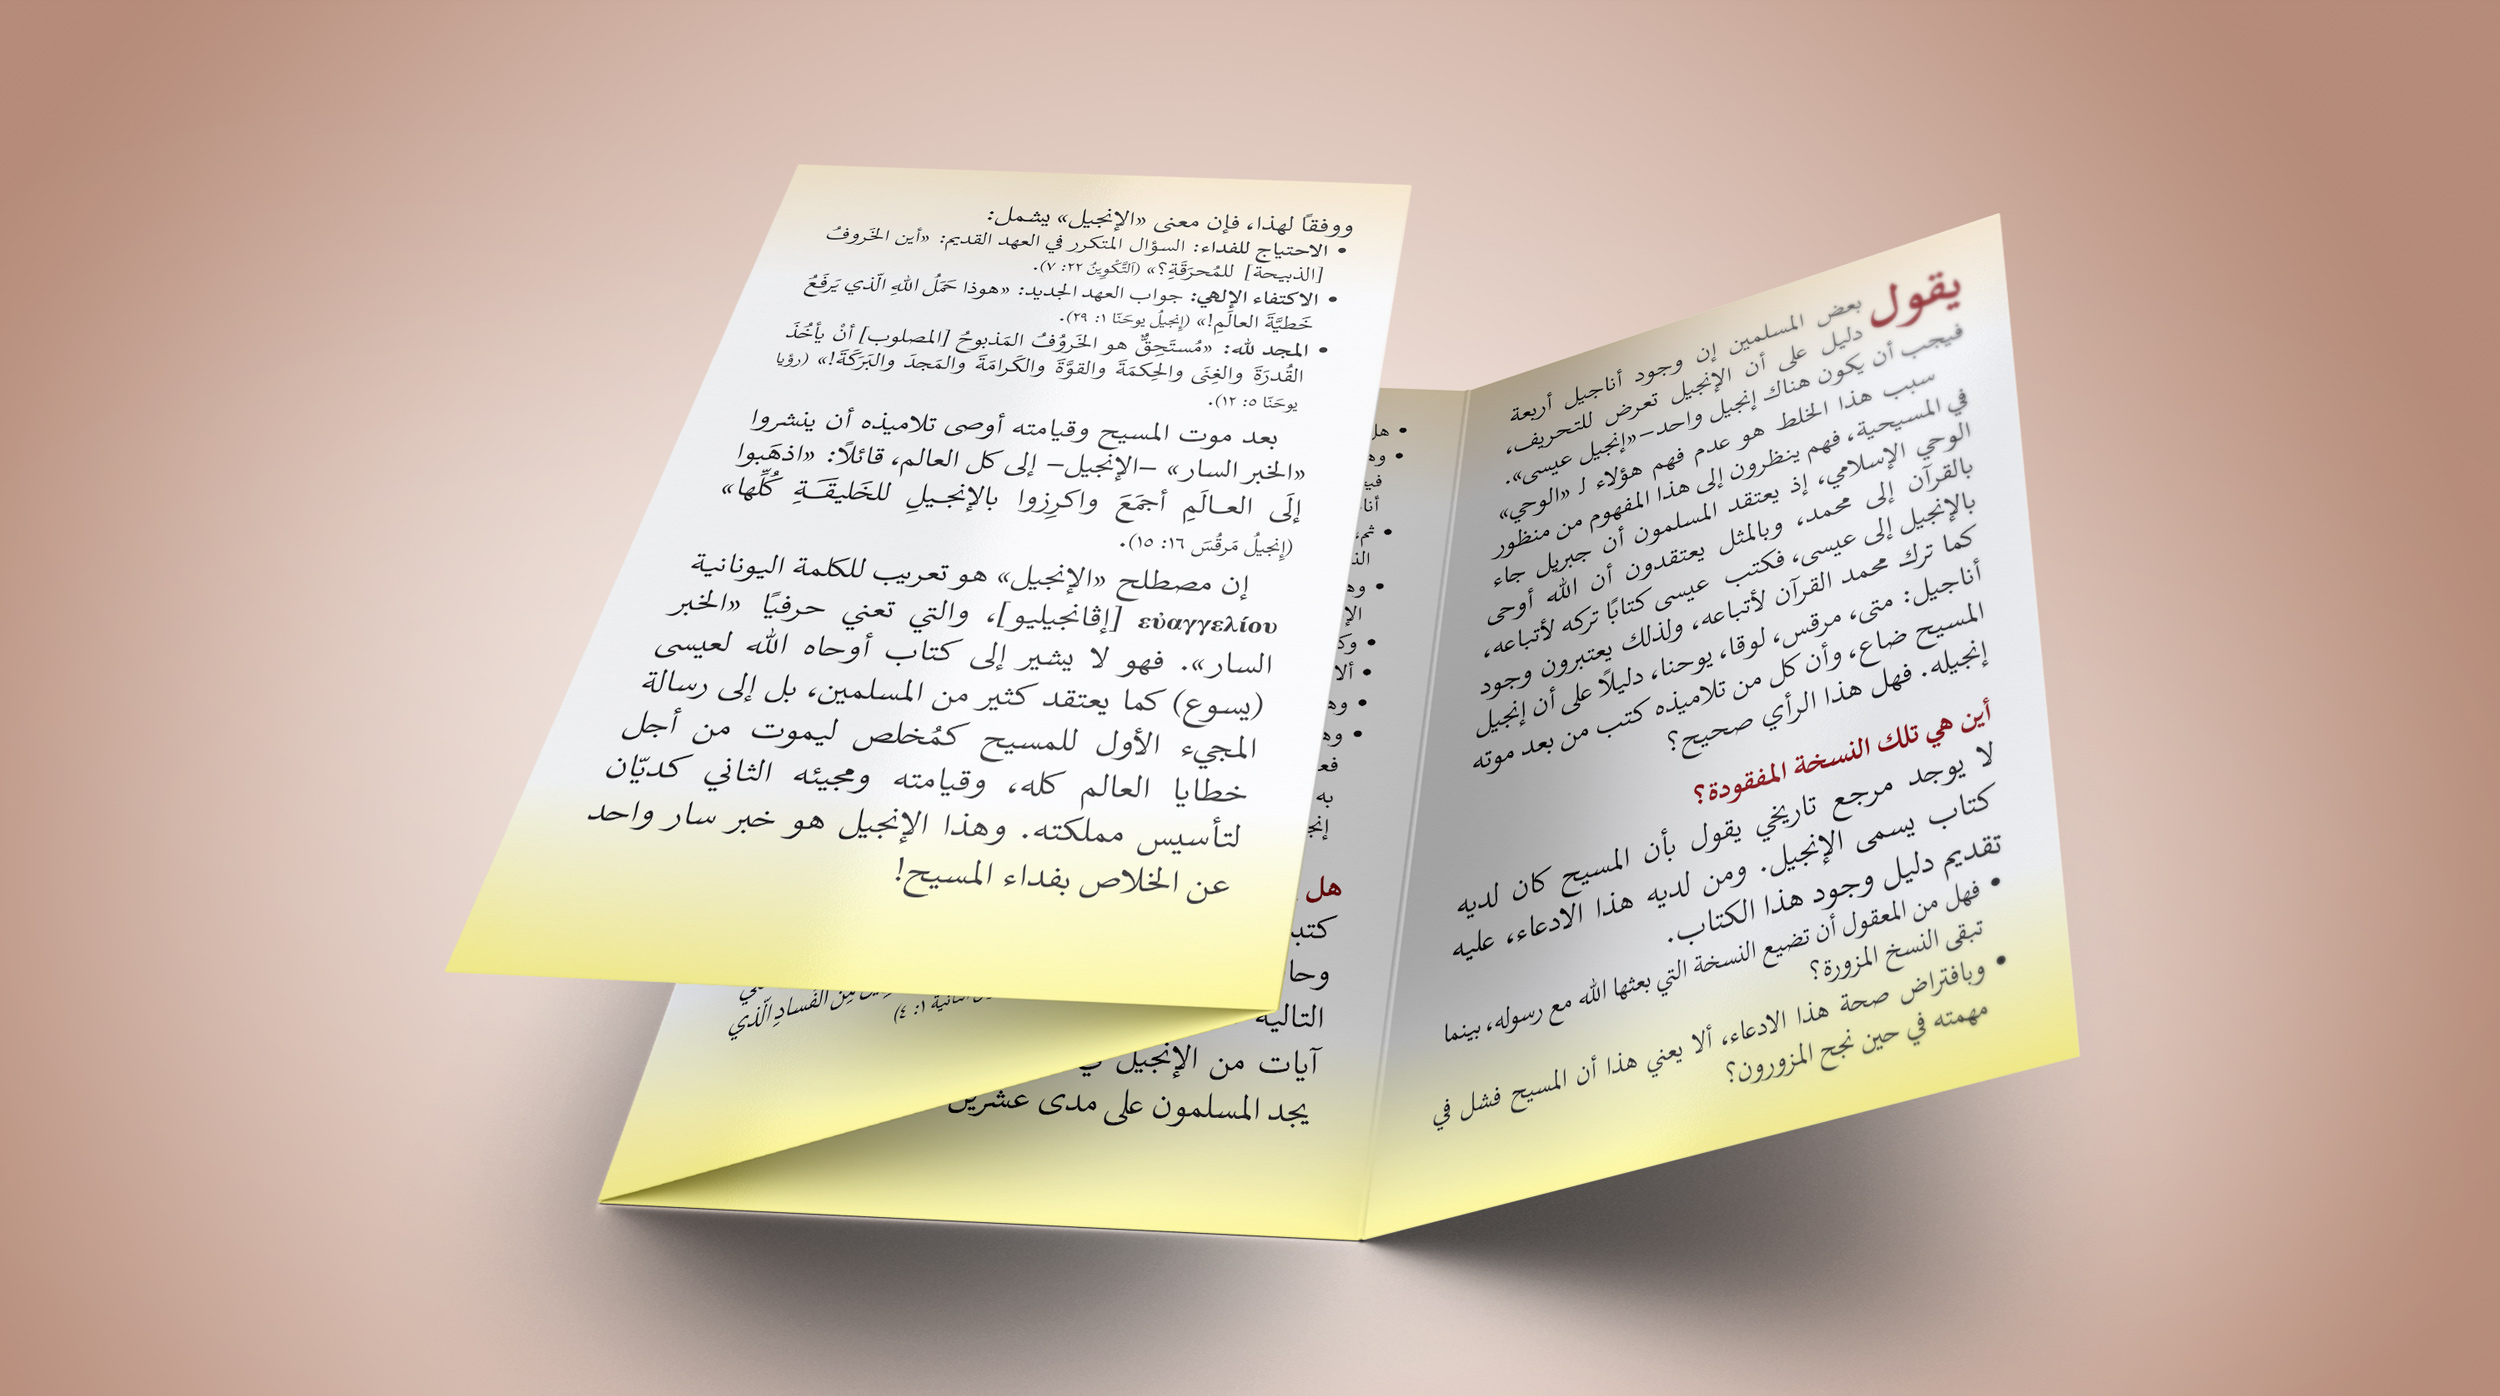 يقول بعض المسلمين إن وجود أناجيل أربعة
دليل على أن الإنجيل تعرض للتحريف،
فيجب أن يكون هناك إنجيل واحد–«إنجيل عيسى».
سبب هذا الخلط هو عدم فهم هؤلاء لـ «الوحي»
في المسيحية، فهم ينظرون إلى هذا المفهوم من منظور
الوحي الإسلامي، إذ يعتقد المسلمون أن جبريل جاء
بالقرآن إلى محمد، وبالمثل يعتقدون أن الله أوحى
بالإنجيل إلى عيسى، فكتب عيسى كتابًا تركه لأتباعه،
كما ترك محمد القرآن لأتباعه، ولذلك يعتبرون وجود
أناجيل: متى، مرقس، لوقا، يوحنا، دليلًا على أن إنجيل
المسيح ضاع، وأن كل من تلاميذه كتب من بعد موته
إنجيله. فهل هذا الرأي صحيح؟
أين هي تلك النسخة المفقودة؟
لا يوجد مرجع تاريخي يقول بأن المسيح كان لديه
كتاب يسمى الإنجيل. ومن لديه هذا الادعاء، عليه
تقديم دليل وجود هذا الكتاب.
• فهل من المعقول أن تضيع النسخة التي بعثها الله مع رسوله، بينما
تبقى النسخ المزورة؟
• وبافتراض صحة هذا الادعاء، ألا يعني هذا أن المسيح فشل في
مهمته في حين نجح المزورون؟
• هل
• وه
في
أنا
• ثم،
الذ
• وه
الإ
• وك
• ألا
• وه
• وه
فع
به
إنج
هل
كتب
وحا
التالية
آيات من الإنجيل في
يجد المسلمون على مدى عشرين
الفَسادِ الّذي
الثانية ١: ٤)
ووفقًا لهذا، فإن معنى «الإنجيل» يشمل:
• الاحتياج للفداء: السؤال المتكرر في العهد القديم: «أين الخَروفُ
[الذبيحة] للمُحرَقَةِ؟» (اَلتَّكْوِينُ ٢٢: ٧).
• الاكتفاء الإلهي: جواب العهد الجديد: «هوذا حَمَلُ اللهِ الّذي يَرفَعُ
خَطيَّةَ العالَمِ!» (إنجيلُ يوحَنّا ١: ٢٩).
• المجد لله: «مُستَحِقٌّ هو الخَروُفُ المَذبوحُ [المصلوب] أنْ يأخُذَ
القُدرَةَ والغِنَى والحِكمَةَ والقوَّةَ والكَرامَةَ والمَجدَ والبَرَكَةَ!» (رؤيا
يوحَنّا ٥: ١٢).
بعد موت المسيح وقيامته أوصى تلاميذه أن ينشروا
«الخبر السار» –الإنجيل– إلى كل العالم، قائلًا: «اذهَبوا
إلَى العـالَمِ أجمَعَ واكرِزوا بالإنجـيلِ للخَليقَـةِ كُلِّها»
(إنجيلُ مَرقُسَ ١٦: ١٥).
إن مصطلح «الإنجيل» هو تعريب للكلمة اليونانية
εὐαγγελίου [إڤانجيليو]، والتي تعني حرفيًا «الخبر
السار». فهو لا يشير إلى كتاب أوحاه الله لعيسى
(يسوع) كما يعتقد كثير من المسلمين، بل إلى رسالة
المجيء الأول للمسيح كمُخلص ليموت من أجل
خطايا العالم كله، وقيامته ومجيئه الثاني كديّان
لتأسيس مملكته. وهذا الإنجيل هو خبر سار واحد
عن الخلاص بفداء المسيح!